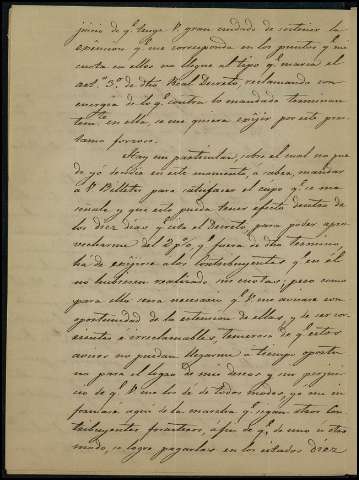 juicio de q.e tenga V. gran cuidado de sostener la
esencion q.e me corresponda en los pueblos y me
cuota en ellos no llegue al tipo q.e marca el
art.º 3.º de dho Real Decreto, reclamando con
energia de lo q.e contra lo mandado terminan
tem.te en ella, se me quiera exijir por este pres
tamo forzoso.
Hay un particular, sobre el cual no pue
do yó decidir en este momento, a saber, mandar
a V. Billetes para satisfacer el cupo q.e se me
señale y que esto pueda tener efecto dentro de
los diez dias q.e cita el Decreto, para poder apro
vecharme del 2 p%, y fuera de dho termino,
há de exijirse a los Contribuyentes q.e en él
no hubiesen realizado sus cuotas, pero como
para ello sera necesario q.e V. me avisase con
oportunidad de la estension de ellas, y de ser cor
rientes é irreclamables, temeroso de q.e estos
avisos no puedan llegarme a tiempo oportu
no para el logro de mis deseos y sin perjui
cio de q.e V. me los dé de todos modos, yo me in
formaré aqui de la marcha q.e sigan otros con
tribuyentes forasteros, á fin de q.e de uno ú otro
modo, se logre pagarlas en los citados diez